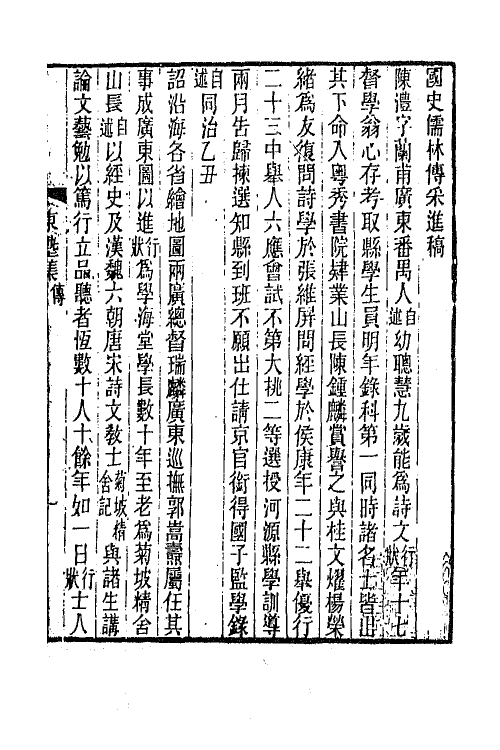 國史儒林傳采進稿
陳澧字蘭甫廣東番禺人自述幼聰慧九歲能爲詩文行狀年十七
督學翁心存考取縣學生員明年錄科第一同時諸名士皆出
其下命入粵秀書院肄業山長陳鍾麟賞譽之與桂文燿楊榮
緒爲友復問詩學於張維屏問經學於侯康年二十二舉優行
二十三中舉人六應會試不第大挑二等選授河源縣學訓導
兩月告歸揀選知縣到班不願出仕請京官銜得國子監學錄
自述同治乙丑
詔沿海各省繪地圖兩廣總督瑞麟廣東巡撫郭嵩燾屬任其
事成廣東圖以進行狀爲學海堂學長數十年至老爲菊坡精舍
山長自述以經史及漢魏六朝唐宋詩文敎士菊坡精舍記與諸生講
論文藝勉以篤行立品聽者恆數十人十餘年如一日行狀士人
東塾集 傳 一